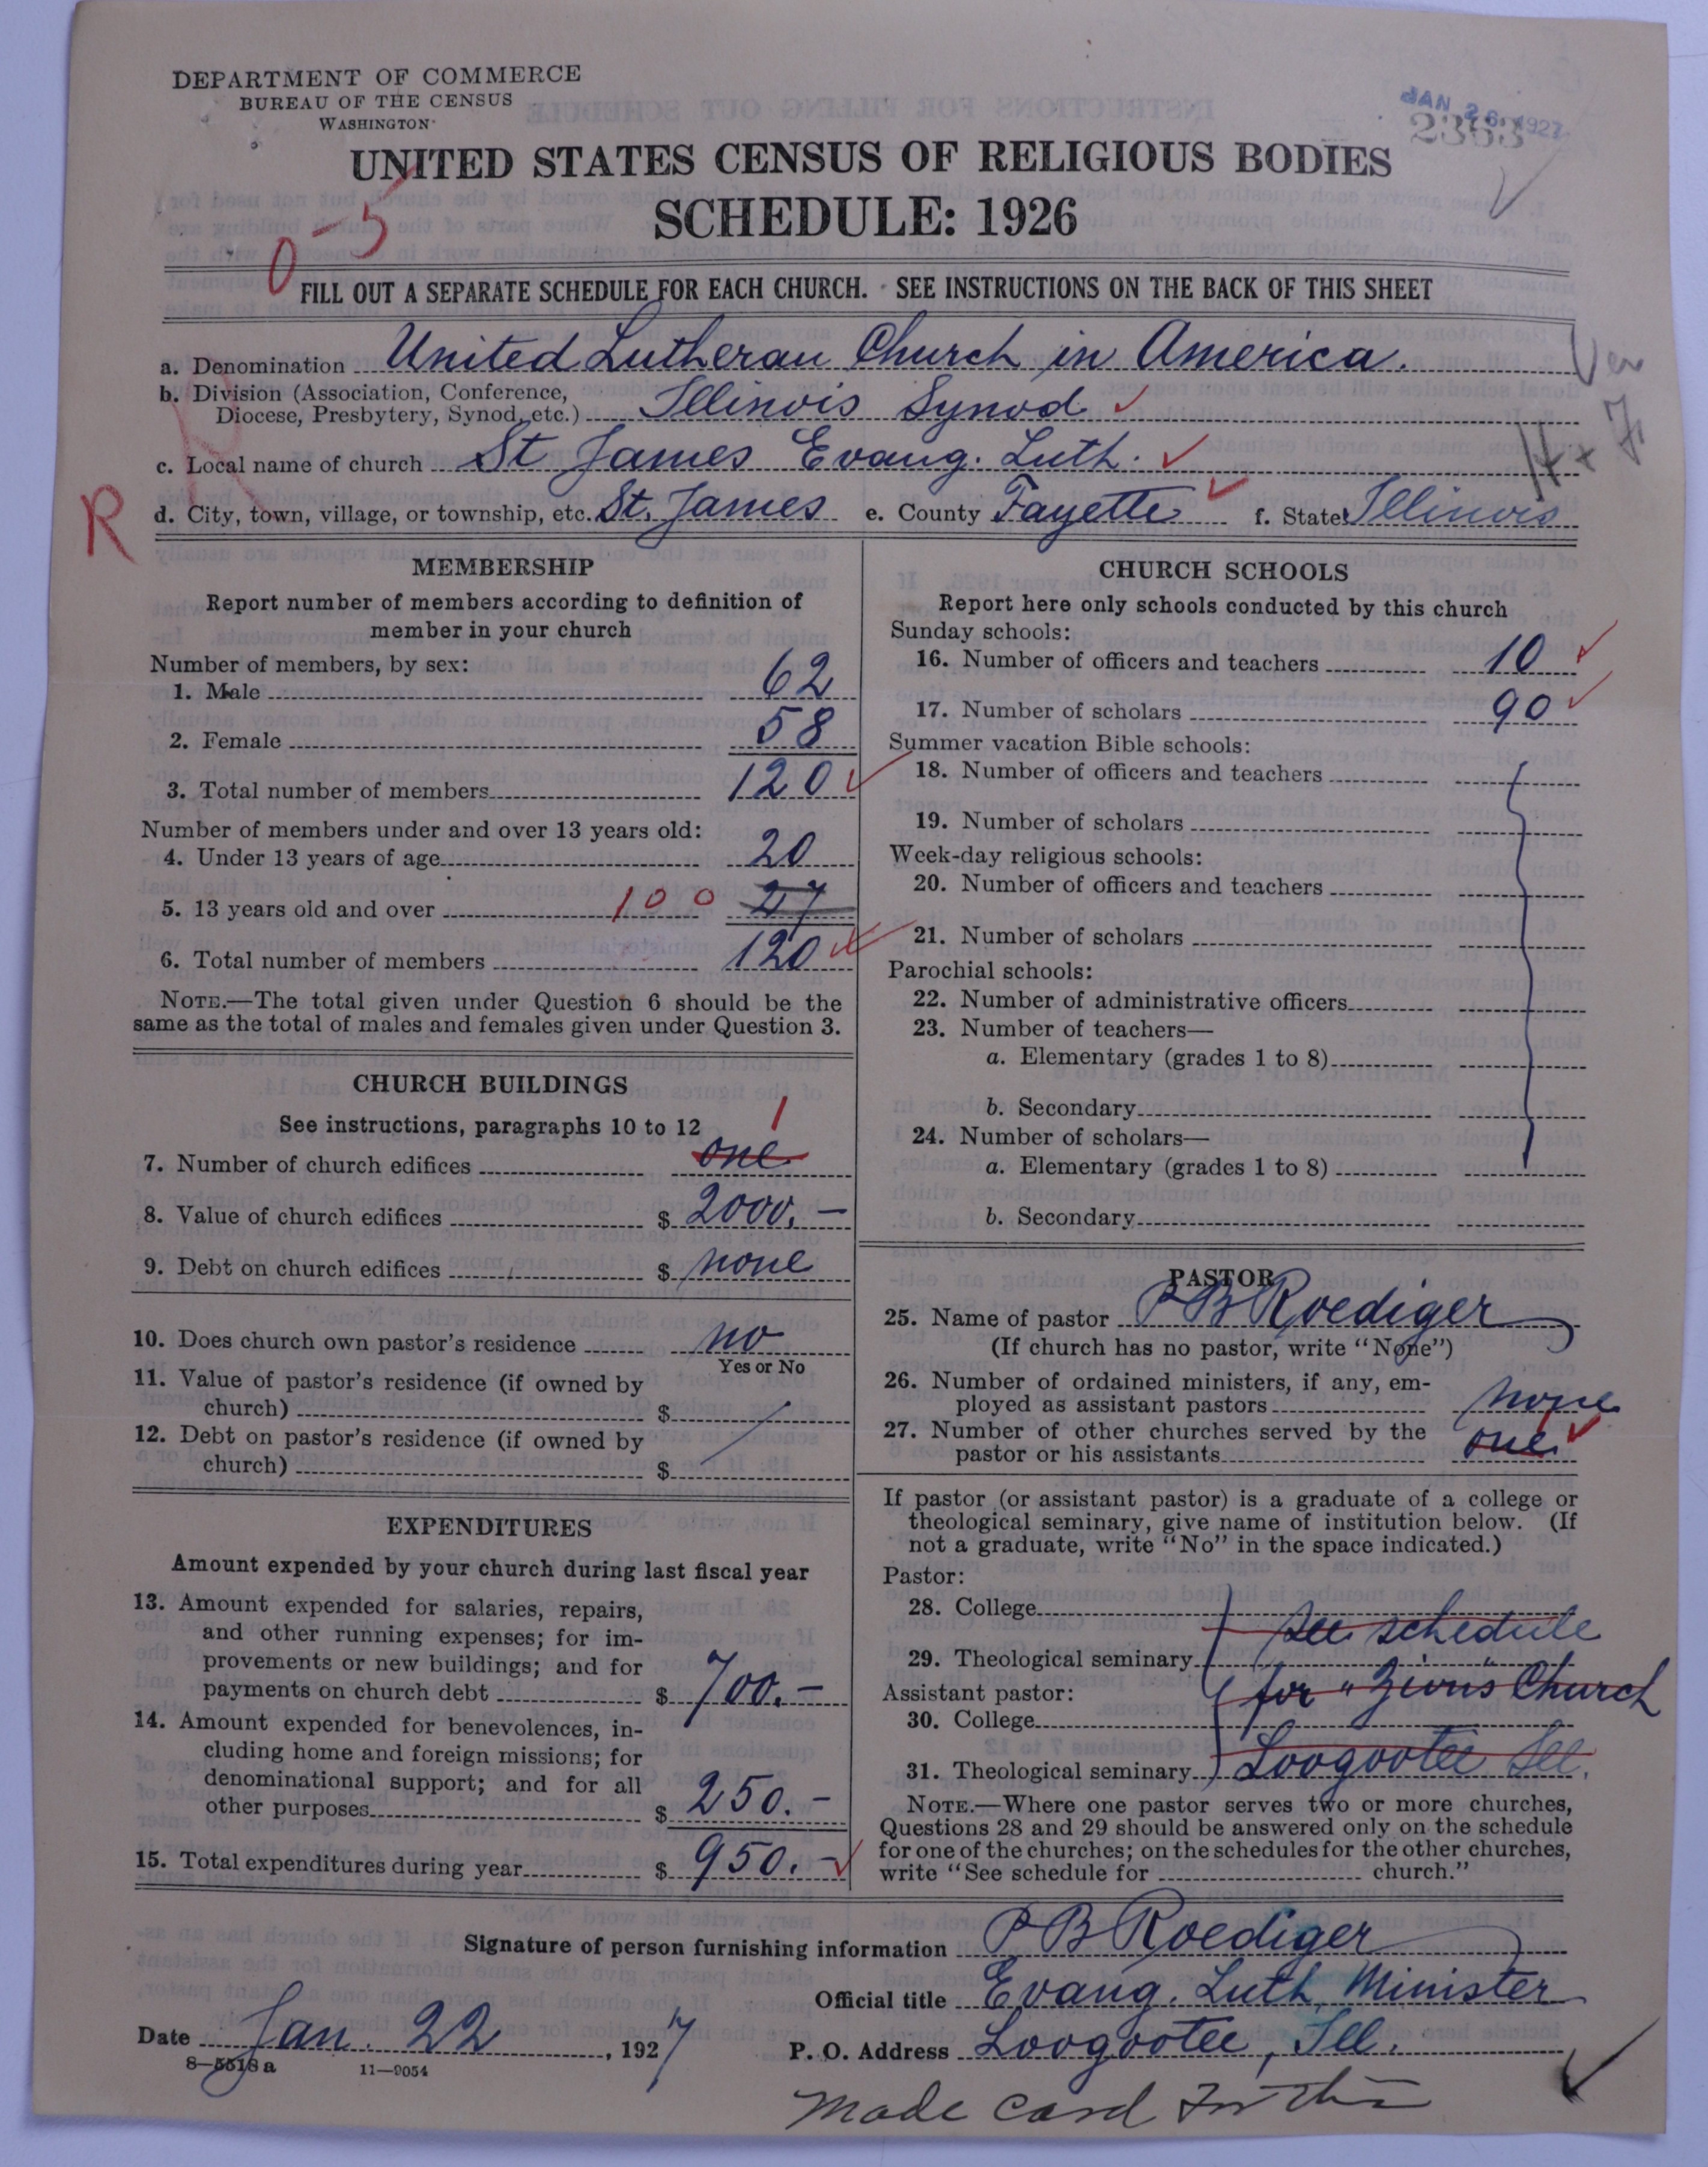 DEPARTMENT OF COMMERCE
BUREAU OF THE CENSUS
WASHINGTON
JAN 26 1927
2363
UNITED STATES CENSUS OF RELIGIOUS BODIES
SCHEDULE: 1926
0-5
FILL OUT A SEPARATE SCHEDULE FOR EACH CHURCH. SEE INSTRUCTIONS ON THE BACK OF THIS SHEET
a. Denomination United Lutheran Church in America. Ver
b. Division (Association, Conference,
Diocese, Presbytery, Synod, etc.) Illinois Synod
c. Local name of church St James Evang. Luth.
R
d. City, town, village, or township, etc. St. James e. County Fayette f. State Illinois
MEMBERSHIP
Report number of members according to definition of
member in your church
Number of members, by sex:
1. Male 62
2. Female 58
3. Total number of members 120
Number of members under and over 13 years old:
4. Under 13 years of age 20
5. 13 years old and over 100 27
6. Total number of members 120
NOTE.—The total given under Question 6 should be the
same as the total of males and females given under Question 3.
CHURCH BUILDINGS
See instructions, paragraphs 10 to 12
7. Number of church edifices one 1
8. Value of church edifices $ 2000.—
9. Debt on church edifices $ none
10. Does church own pastor's residence no
Yes or No
11. Value of pastor's residence (if owned by
church) $
12. Debt on pastor's residence (if owned by
church) $
EXPENDITURES
Amount expended by your church during last fiscal year
13. Amount expended for salaries, repairs,
and other running expenses; for im-
provements or new buildings; and for
payments on church debt $ 700.—
14. Amount expended for benevolences, in-
cluding home and foreign missions; for
denominational support; and for all
other purposes $ 250.—
15. Total expenditures during year $ 950.—
CHURCH SCHOOLS
Report here only schools conducted by this church
Sunday schools:
16. Number of officers and teachers 10
17. Number of scholars 90
Summer vacation Bible schools:
18. Number of officers and teachers
19. Number of scholars
Week-day religious schools:
20. Number of officers and teachers
21. Number of scholars
Parochial schools:
22. Number of administrative officers
23. Number of teachers—
a. Elementary (grades 1 to 8)
b. Secondary
24. Number of scholars—
a. Elementary (grades 1 to 8)
b. Secondary
PASTOR
25. Name of pastor P B Roediger
(If church has no pastor, write "None")
26. Number of ordained ministers, if any, em-
ployed as assistant pastors none
27. Number of other churches served by the
pastor or his assistants one
If pastor (or assistant pastor) is a graduate of a college or
theological seminary, give name of institution below. (If
not a graduate, write "No" in the space indicated.)
Pastor:
28. College
see schedule
29. Theological seminary
Assistant pastor:
for "Zion's Church
30. College
31. Theological seminary Loogootee Ill.
NOTE.—Where one pastor serves two or more churches,
Questions 28 and 29 should be answered only on the schedule
for one of the churches; on the schedules for the other churches,
write "See schedule for church."
Signature of person furnishing information P B Roediger
Official title Evang. Luth. Minister
Date Jan. 22, 1927
P. O. Address Loogootee, Ill.
8—5518a 11—9054
Made card for this